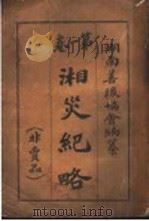 湖南善振協會編纂
第一卷
湘災紀略
（非賣品）